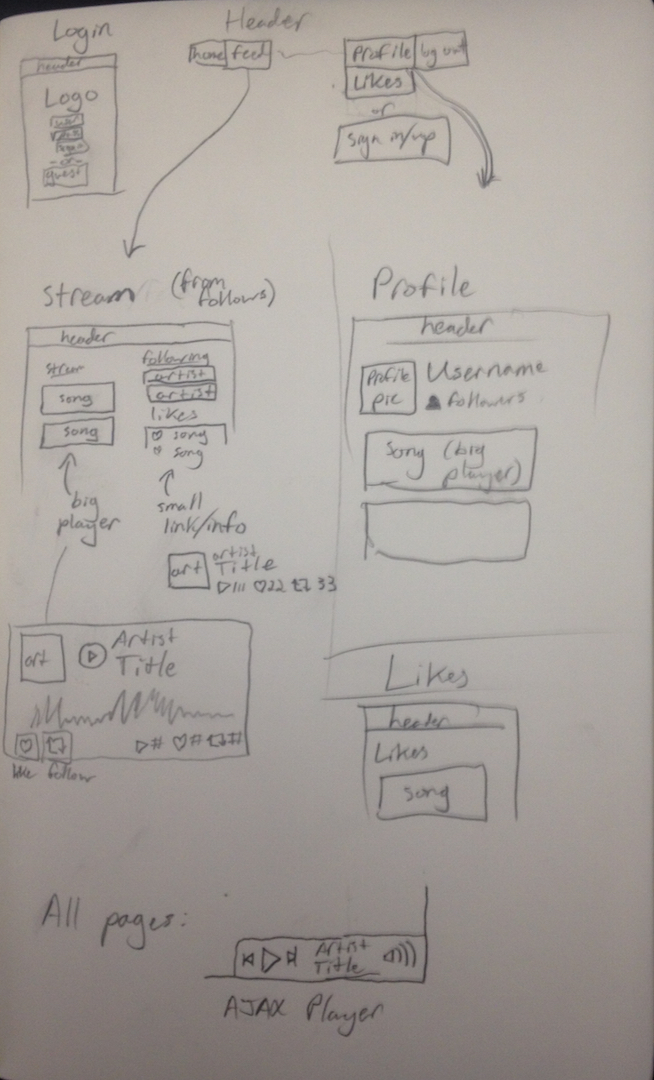 Login
header
Logo
user
-or-
guest
Header
home feed
Profile log out
Likes
or
sign in/up
Stream (from follows)
header
stream
song
song
big
player
following
artist
artist
likes
♡ song
♡ song
small
link/info
art
artist
Title
▷111 ♡22 33
art
Artist
Title
▷# ♡# #
like follow
Profile
header
Profile
pic
Username
followers
Song (big
player)
Likes
header
Likes
song
All pages:
Artist
Title
AJAX Player